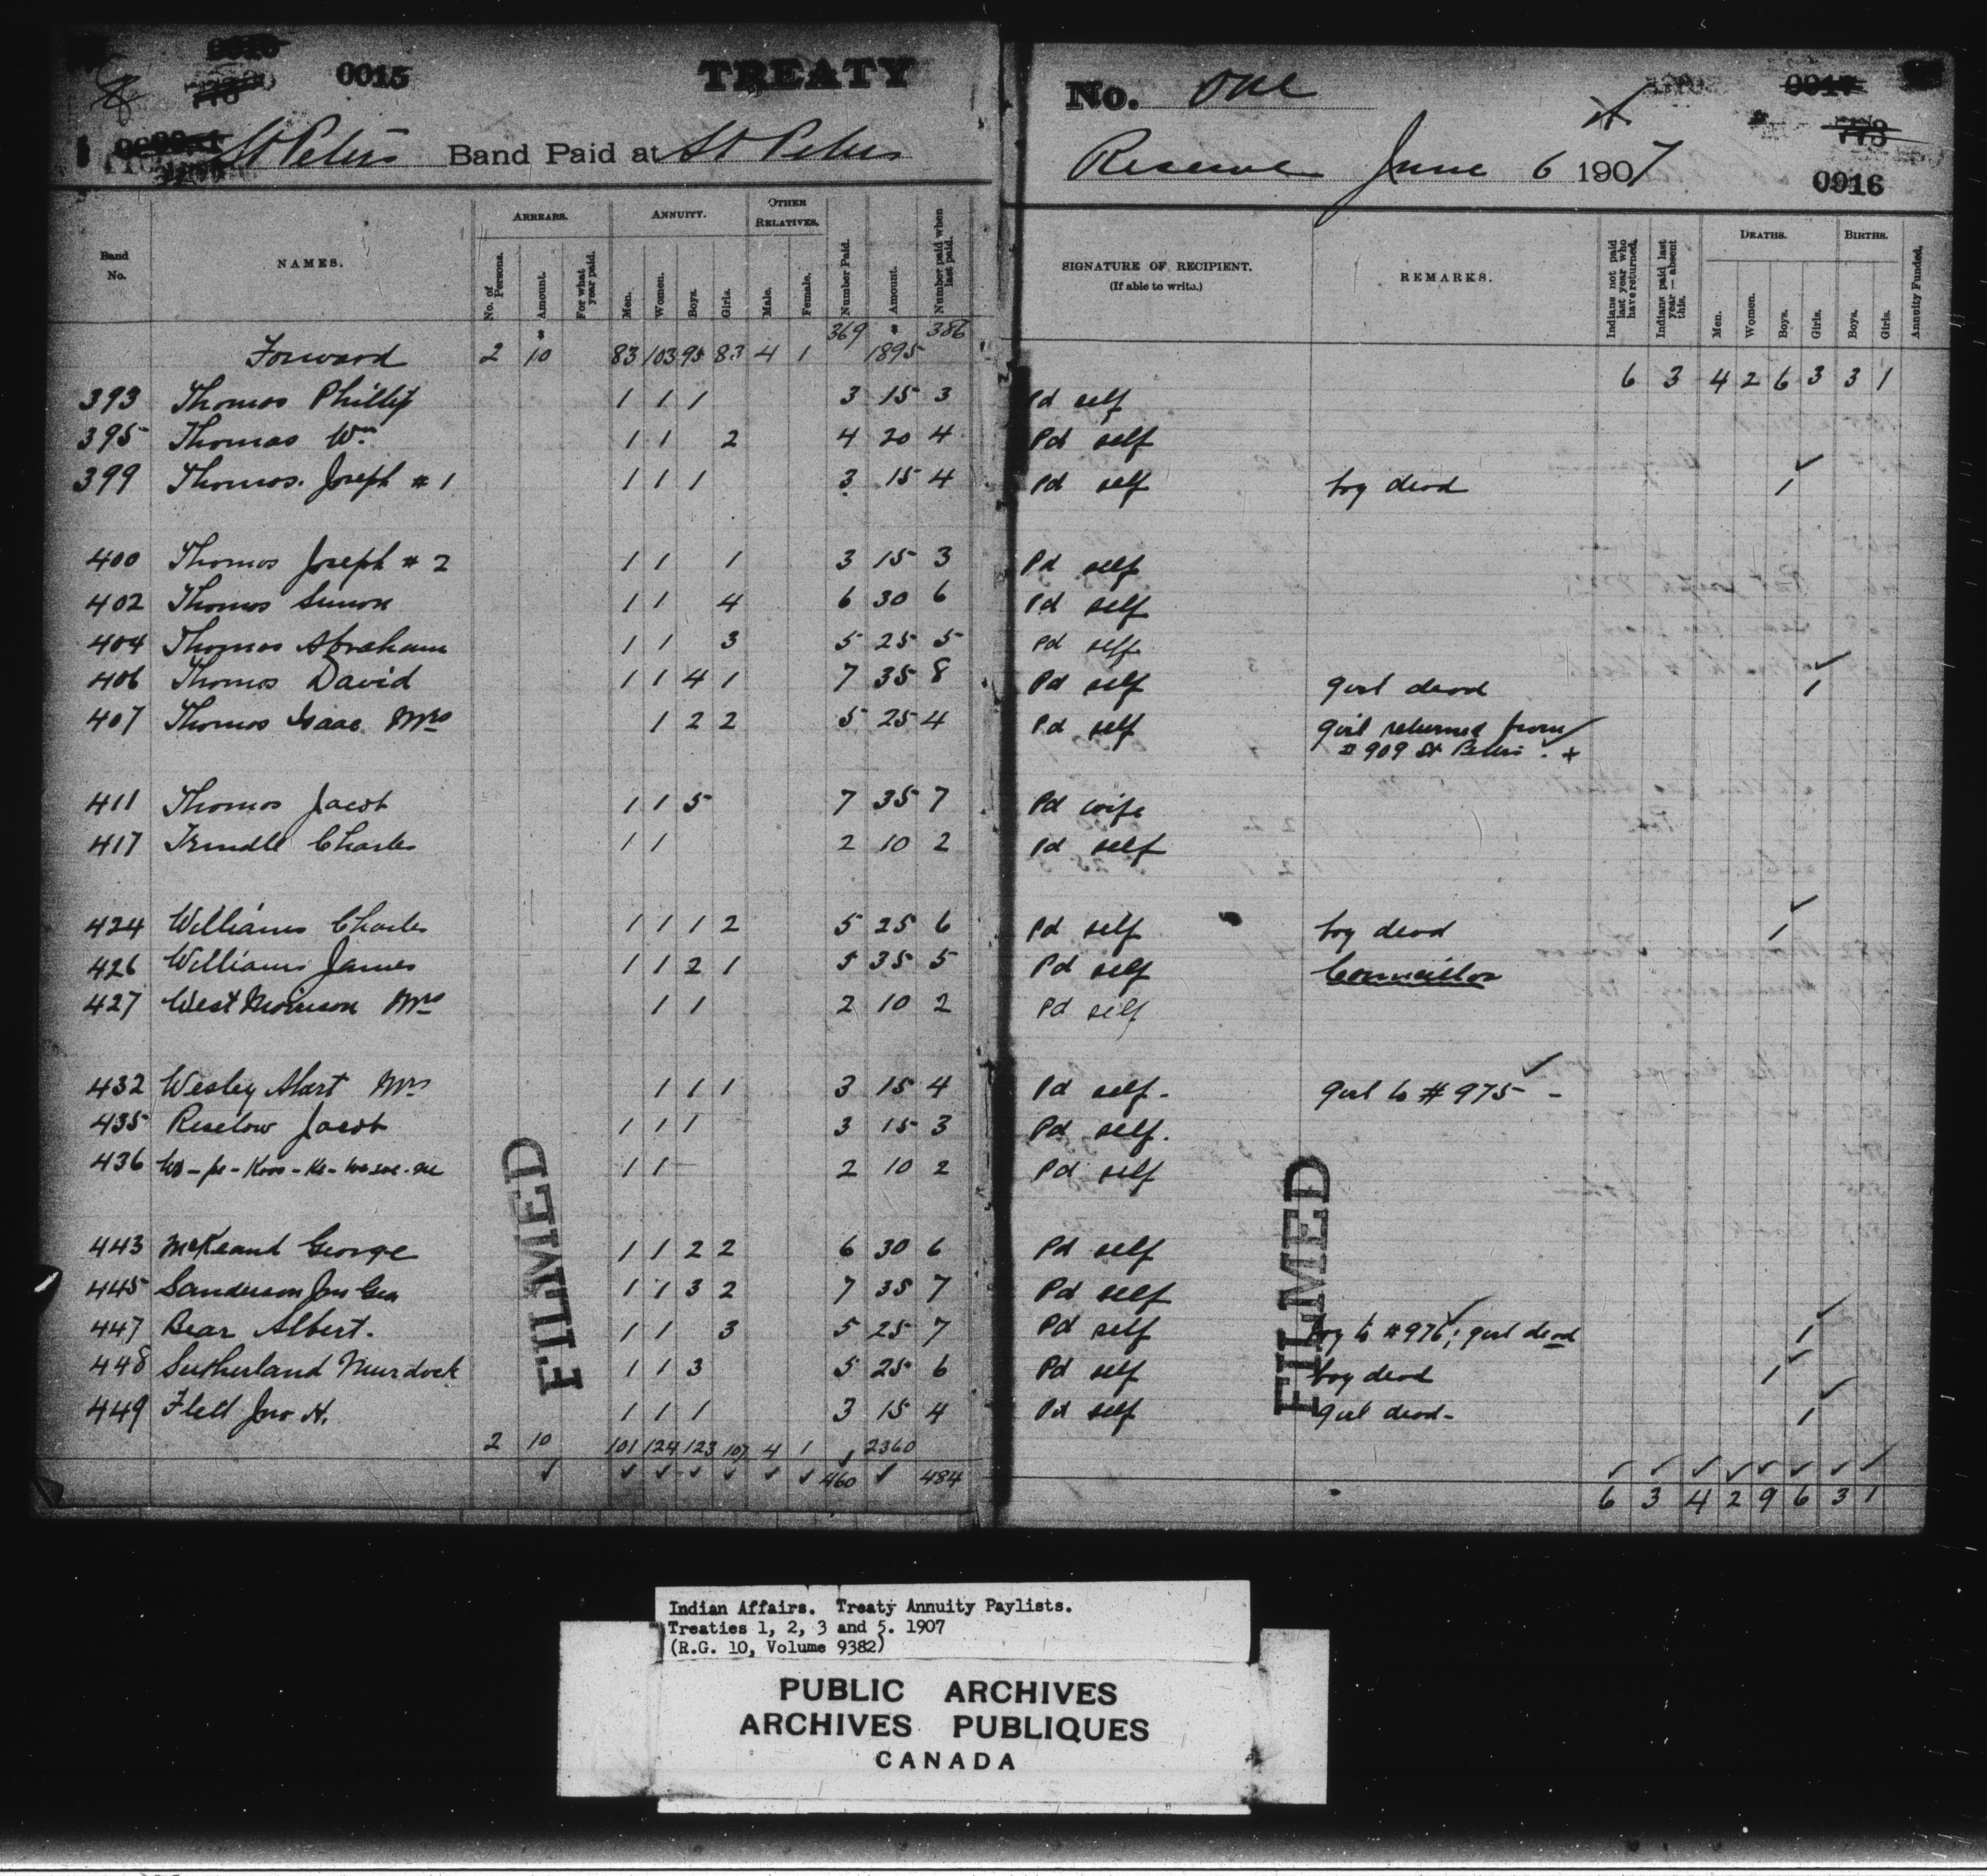 0015 TREATY No. One
St Peters Band Paid at St Peters Reserve June 6 1907
0016
Band No. NAMES. ARREARS. No. of Persons. Amount. For what year paid. ANNUITY. Men. Women. Boys. Girls. OTHER RELATIVES. Male. Female. Number Paid. Amount. Number paid when last paid. SIGNATURE OF RECIPIENT. (If able to write.) REMARKS. Indians not paid last year who have returned. Indians paid last year—absent this. DEATHS. Men. Women. Boys. Girls. BIRTHS. Boys. Girls. Annuity Funded.
Forward 2 10 83 103 95 83 4 1 369 1895 386 6 3 4 2 6 3 3 1
393 Thomas Phillip 1 1 1 3 15 3 Pd self
395 Thomas Wm 1 1 2 4 20 4 Pd self
399 Thomas Joseph # 1 1 1 1 3 15 4 Pd self boy dead 1
400 Thomas Joseph # 2 1 1 1 3 15 3 Pd self
402 Thomas Simon 1 1 4 6 30 6 Pd self
404 Thomas Abraham 1 1 3 5 25 5 Pd self
406 Thomas David 1 1 4 1 7 35 8 Pd self girl dead 1
407 Thomas Isaac Mrs 1 2 2 5 25 4 Pd self girl returned from
# 909 St Peters +
411 Thomas Jacob 1 1 5 7 35 7 Pd wife
417 Trindle Charles 1 1 2 10 2 Pd self
424 Williams Charles 1 1 1 2 5 25 6 Pd self boy dead 1
426 Williams James 1 1 2 1 5 35 5 Pd self Councillor
427 West Morrison Mrs 1 1 2 10 2 Pd self
432 Wesley Mrs 1 1 1 3 15 4 Pd self. girl to # 975 -
435 Jacob 1 1 1 3 15 3 Pd self.
436 1 1 2 10 2 Pd self
443 McKeand George 1 1 2 2 6 30 6 Pd self
445 Sanderson Jno Geo 1 1 3 2 7 35 7 Pd self
447 Bear Albert. 1 1 3 5 25 7 Pd self boy to # 976; girl dead 1
448 Sutherland Murdock 1 1 3 5 25 6 Pd self boy dead 1
449 Flett Jno H. 1 1 1 3 15 4 Pd self girl dead - 1
2 10 101 124 123 107 4 1 2360
460 484 6 3 4 2 9 6 3 1
FILMED
FILMED
Indian Affairs. Treaty Annuity Paylists.
Treaties 1, 2, 3 and 5. 1907
(R.G. 10, Volume 9382)
PUBLIC ARCHIVES
ARCHIVES PUBLIQUES
CANADA